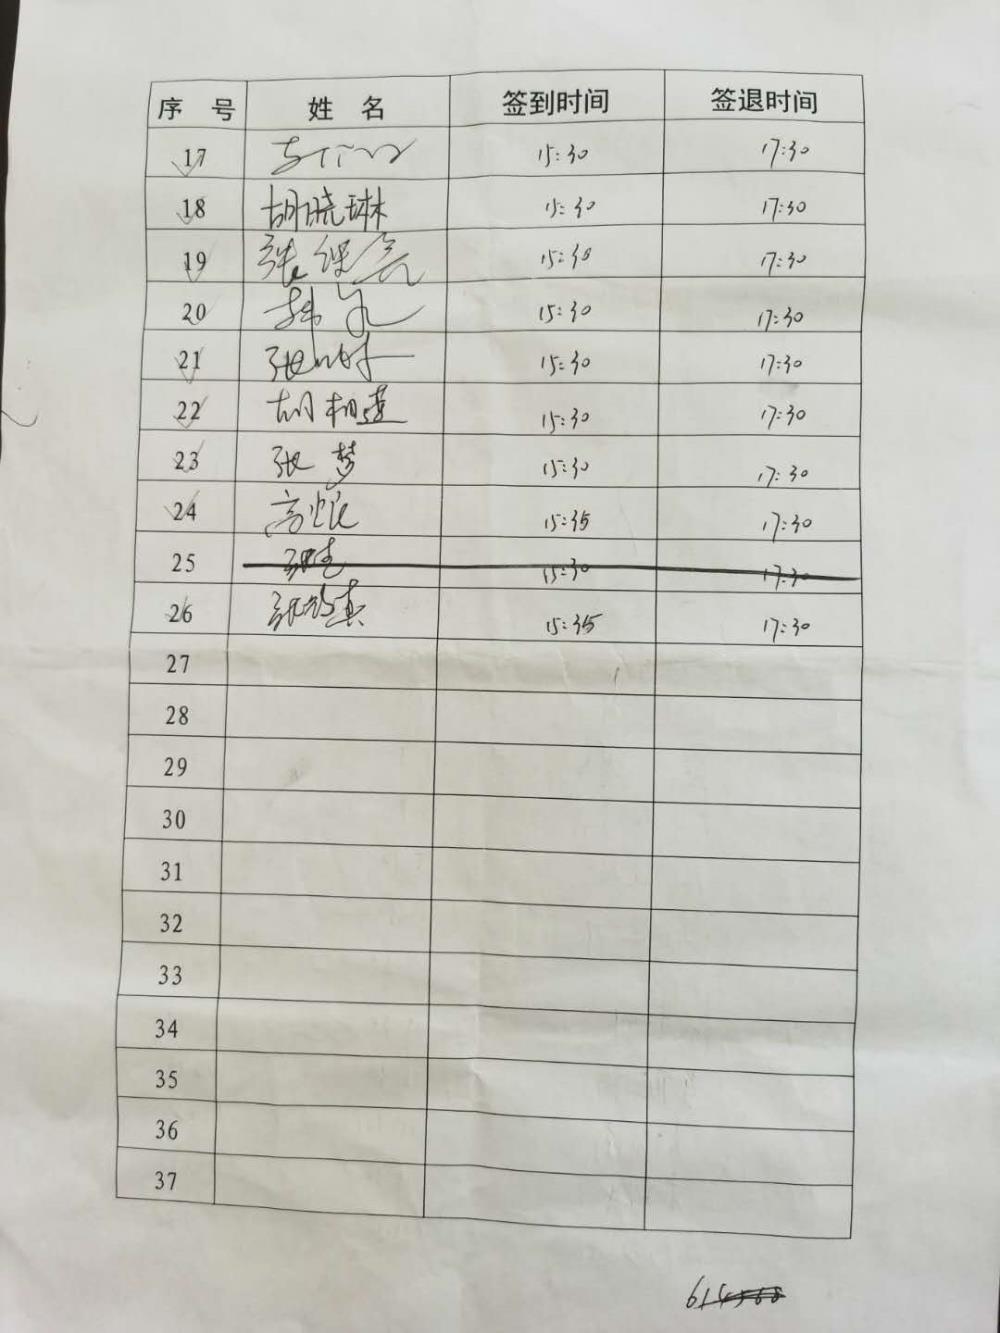 序 号 姓 名 签到时间 签退时间
17 15:30 17:30
18 胡晓琳 15:30 17:30
19 张 15:30 17:30
20 韩 15:30 17:30
21 张 15:30 17:30
22 胡相莲 15:30 17:30
23 张梦 15:30 17:30
24 高 15:35 17:30
25 15:30 17:30
26 张 15:35 17:30
27
28
29
30
31
32
33
34
35
36
37